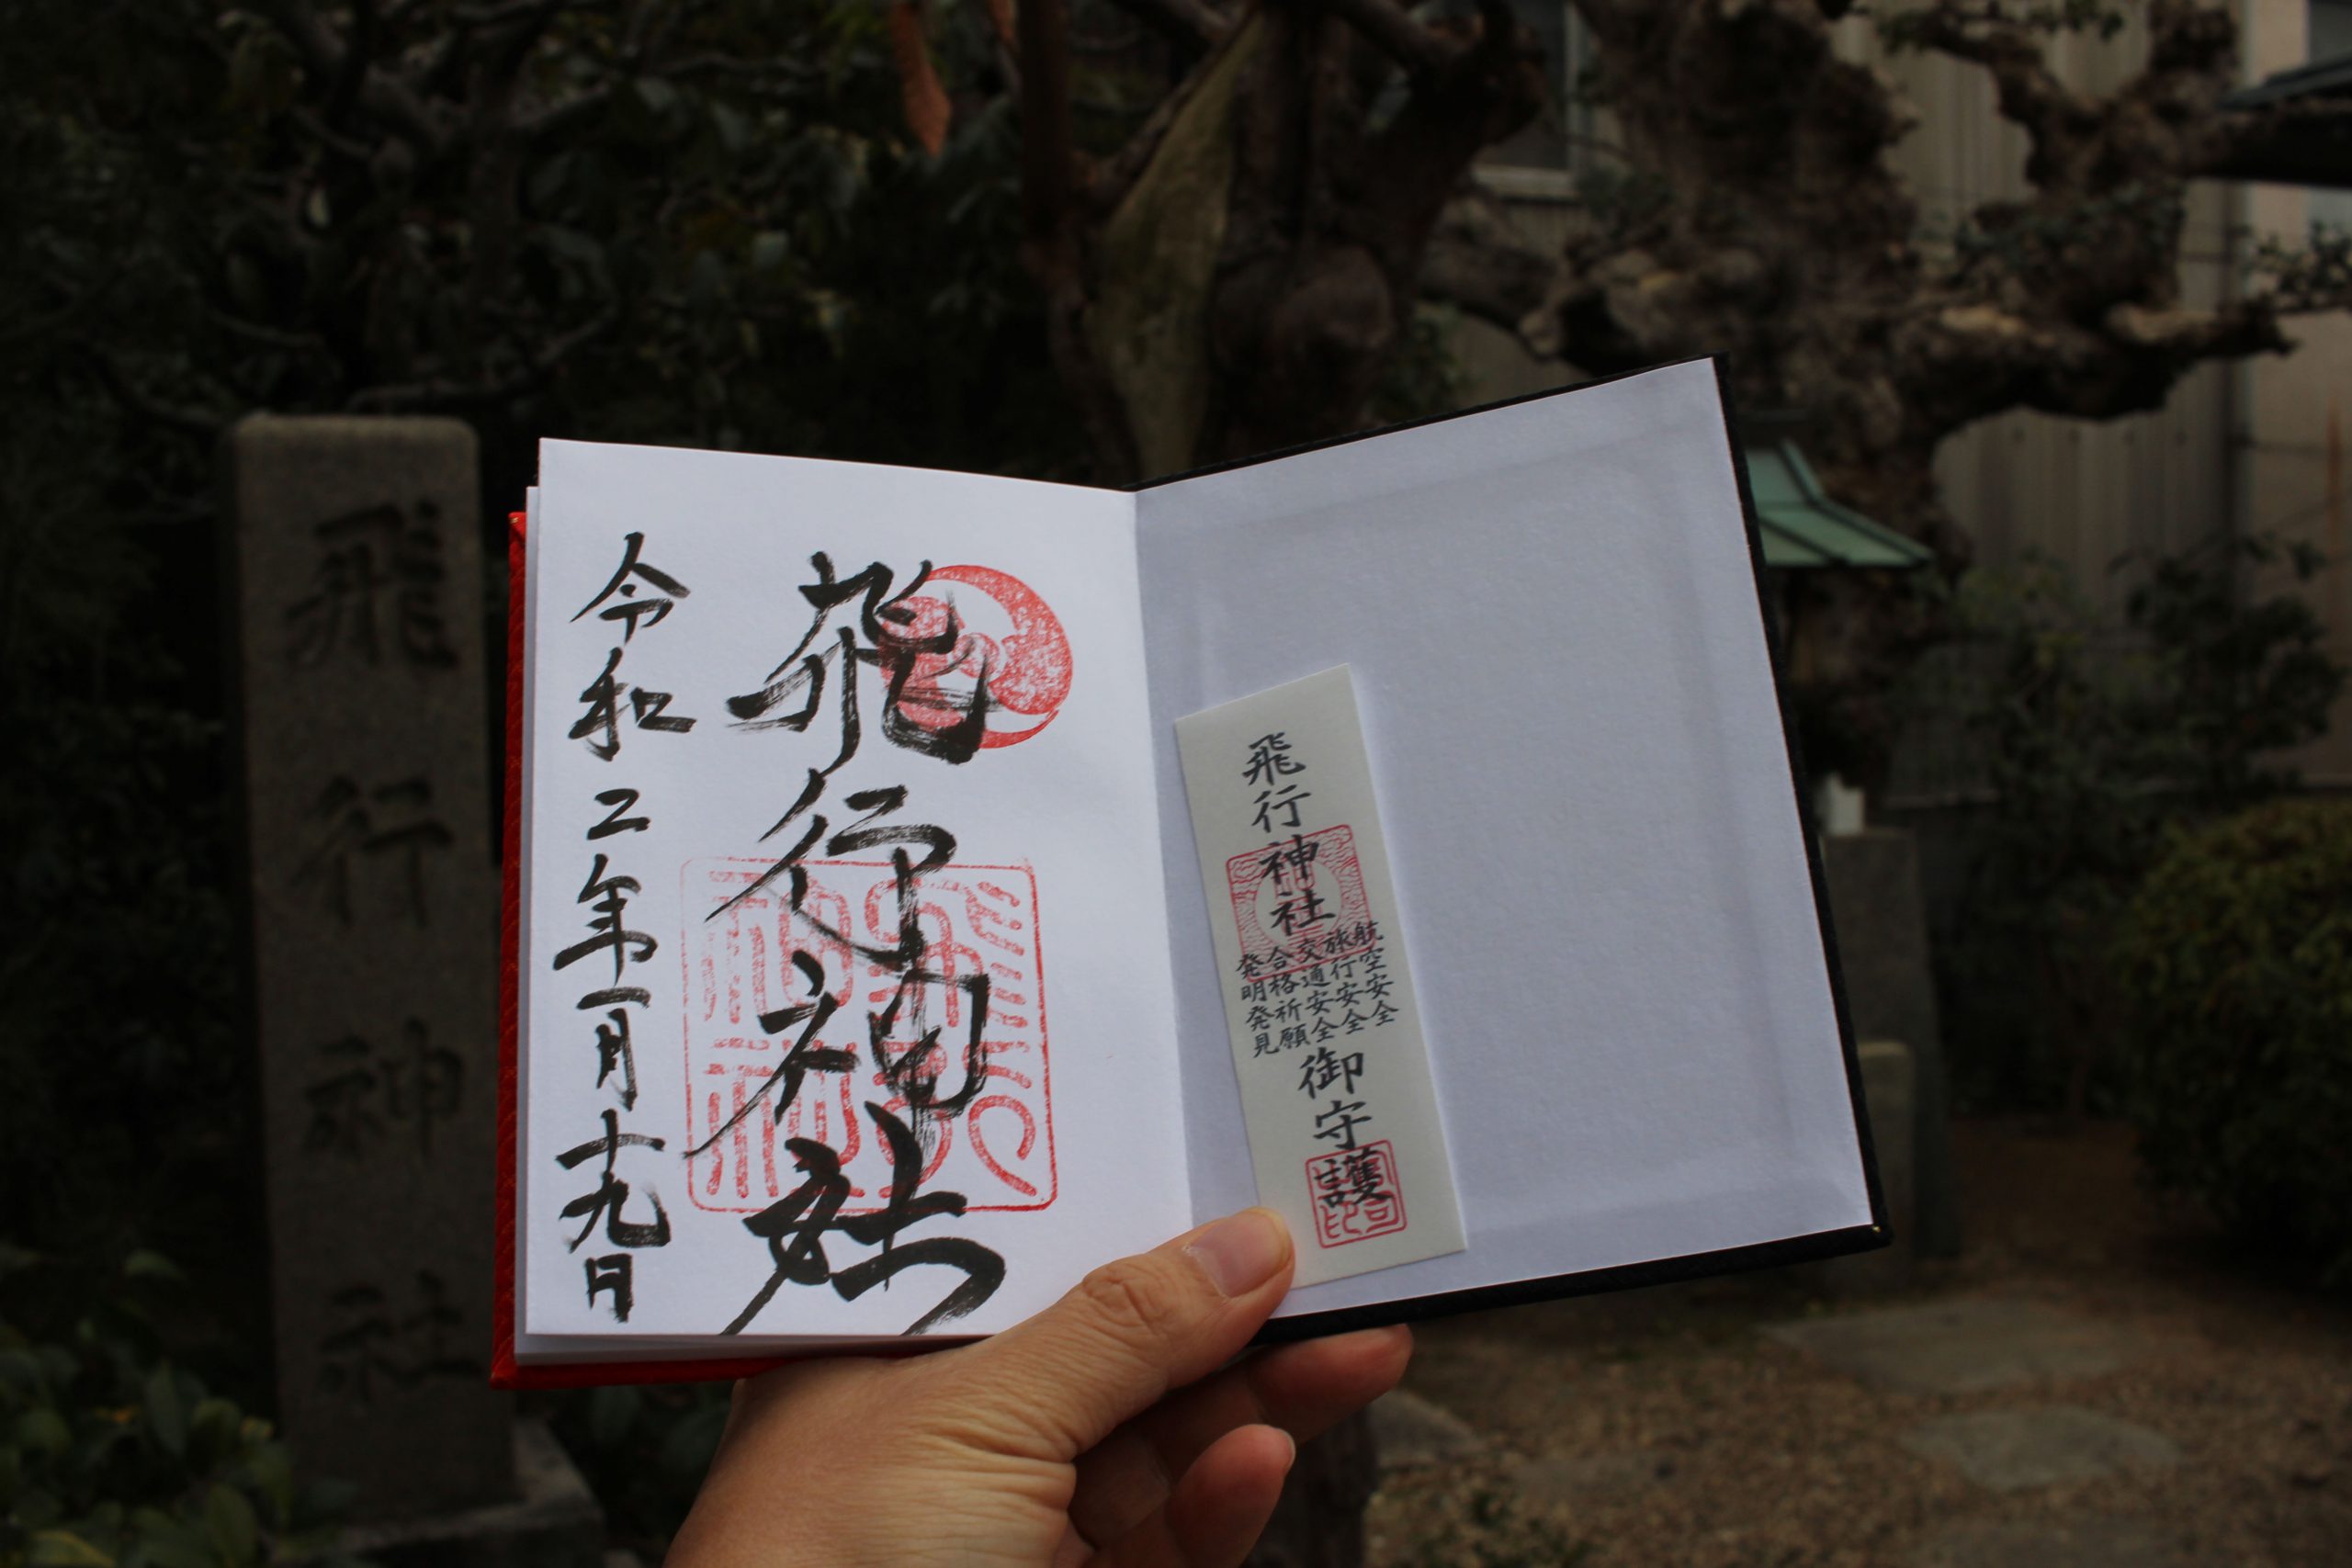 飛行神社
飛行神社
令和二年一月十九日
飛行神社
航空安全
旅行安全
交通安全
合格祈願
発明発見
御守護